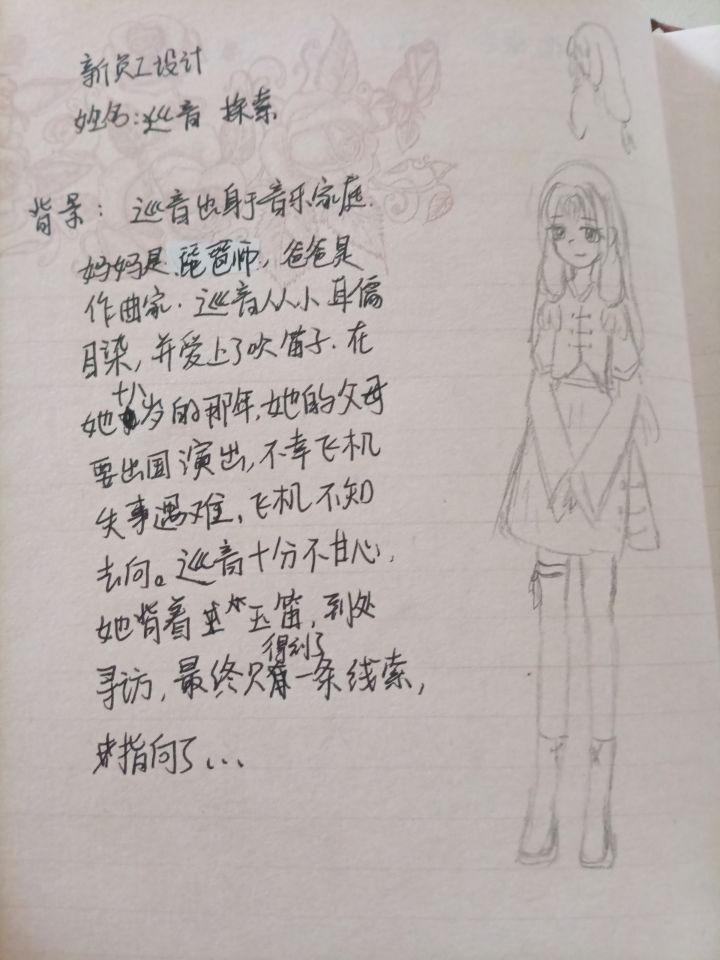 新员工设计
姓名:巡音 探索
背景: 巡音出身于音乐家庭.
妈妈是琵琶师, 爸爸是
作曲家. 巡音从小耳儒
目染, 并爱上了吹笛子. 在
她十八岁的那年, 她的父母
要出国演出, 不幸飞机
失事遇难, 飞机不知
去向。巡音十分不甘心,
她背着玉笛, 到处
寻访, 最终只得到了一条线索,
指向了...